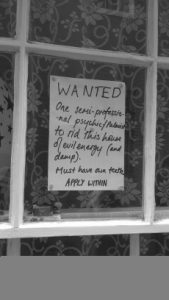 WANTED
One semi-professio-
-nal psychic/Medium
to rid this house
of evil energy (and
damp).
Must have own teeth
APPLY WITHIN